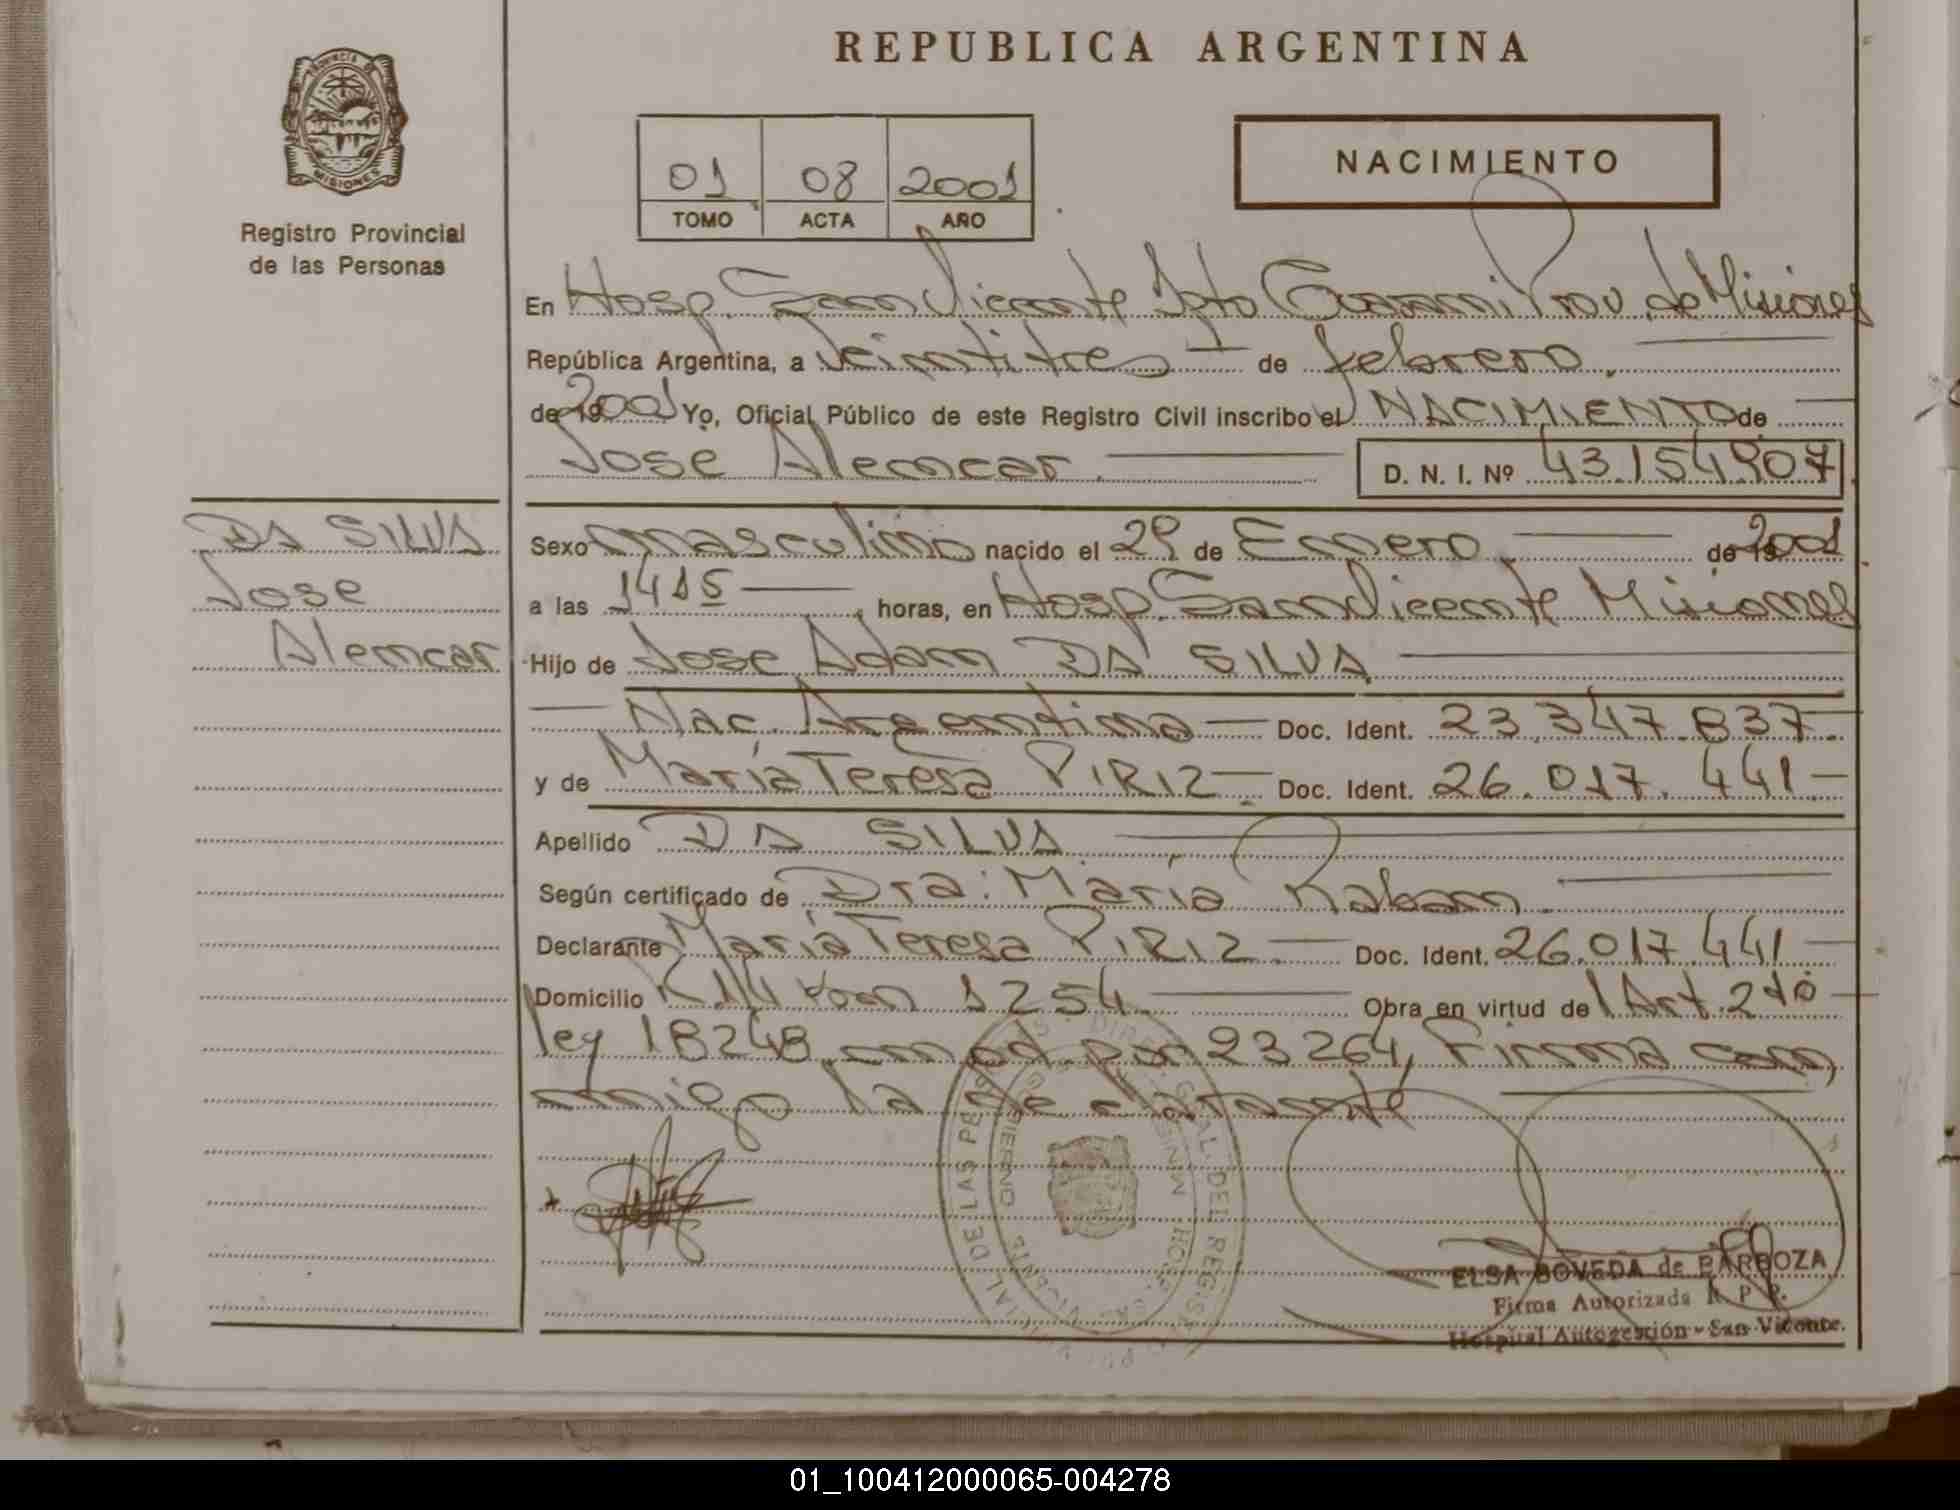 REPUBLICA ARGENTINA
PROVINCIA DE
MISIONES
Registro Provincial
de las Personas
01 08 2001
TOMO ACTA AÑO
NACIMIENTO
En Hosp. San Vicente Dpto Guarani Prov. de Misiones
República Argentina, a Veintitres de febrero.
de 19 2001 Yo, Oficial Público de este Registro Civil inscribo el NACIMIENTO de
Jose Alencar
D. N. I. Nº 43.154.907
DA SILVA
Jose
Alencar
Sexo masculino nacido el 29 de Ennero de 19 2001
a las 1415 horas, en Hosp. San Vicente Misiones
Hijo de Jose Adam DA SILVA
Nac. Argentina Doc. Ident. 23.347.837.
y de María Teresa PIRIZ Doc. Ident. 26.017.441
Apellido DA SILVA
Según certificado de Dra: María Raban
Declarante María Teresa PIRIZ Doc. Ident. 26.017.441
Domicilio K.14 1254 Obra en virtud de Art. 2do
ley 18248 mod por 23264, Firma con
migo la declarante
DIR. GRAL. DEL REGISTRO PROVINCIAL DE LAS PERSONAS
GOBIERNO
ELSA BOVEDA de BARBOZA
Firma Autorizada R. P. P.
Hospital Autogestión - San Vicente.
01_100412000065-004278